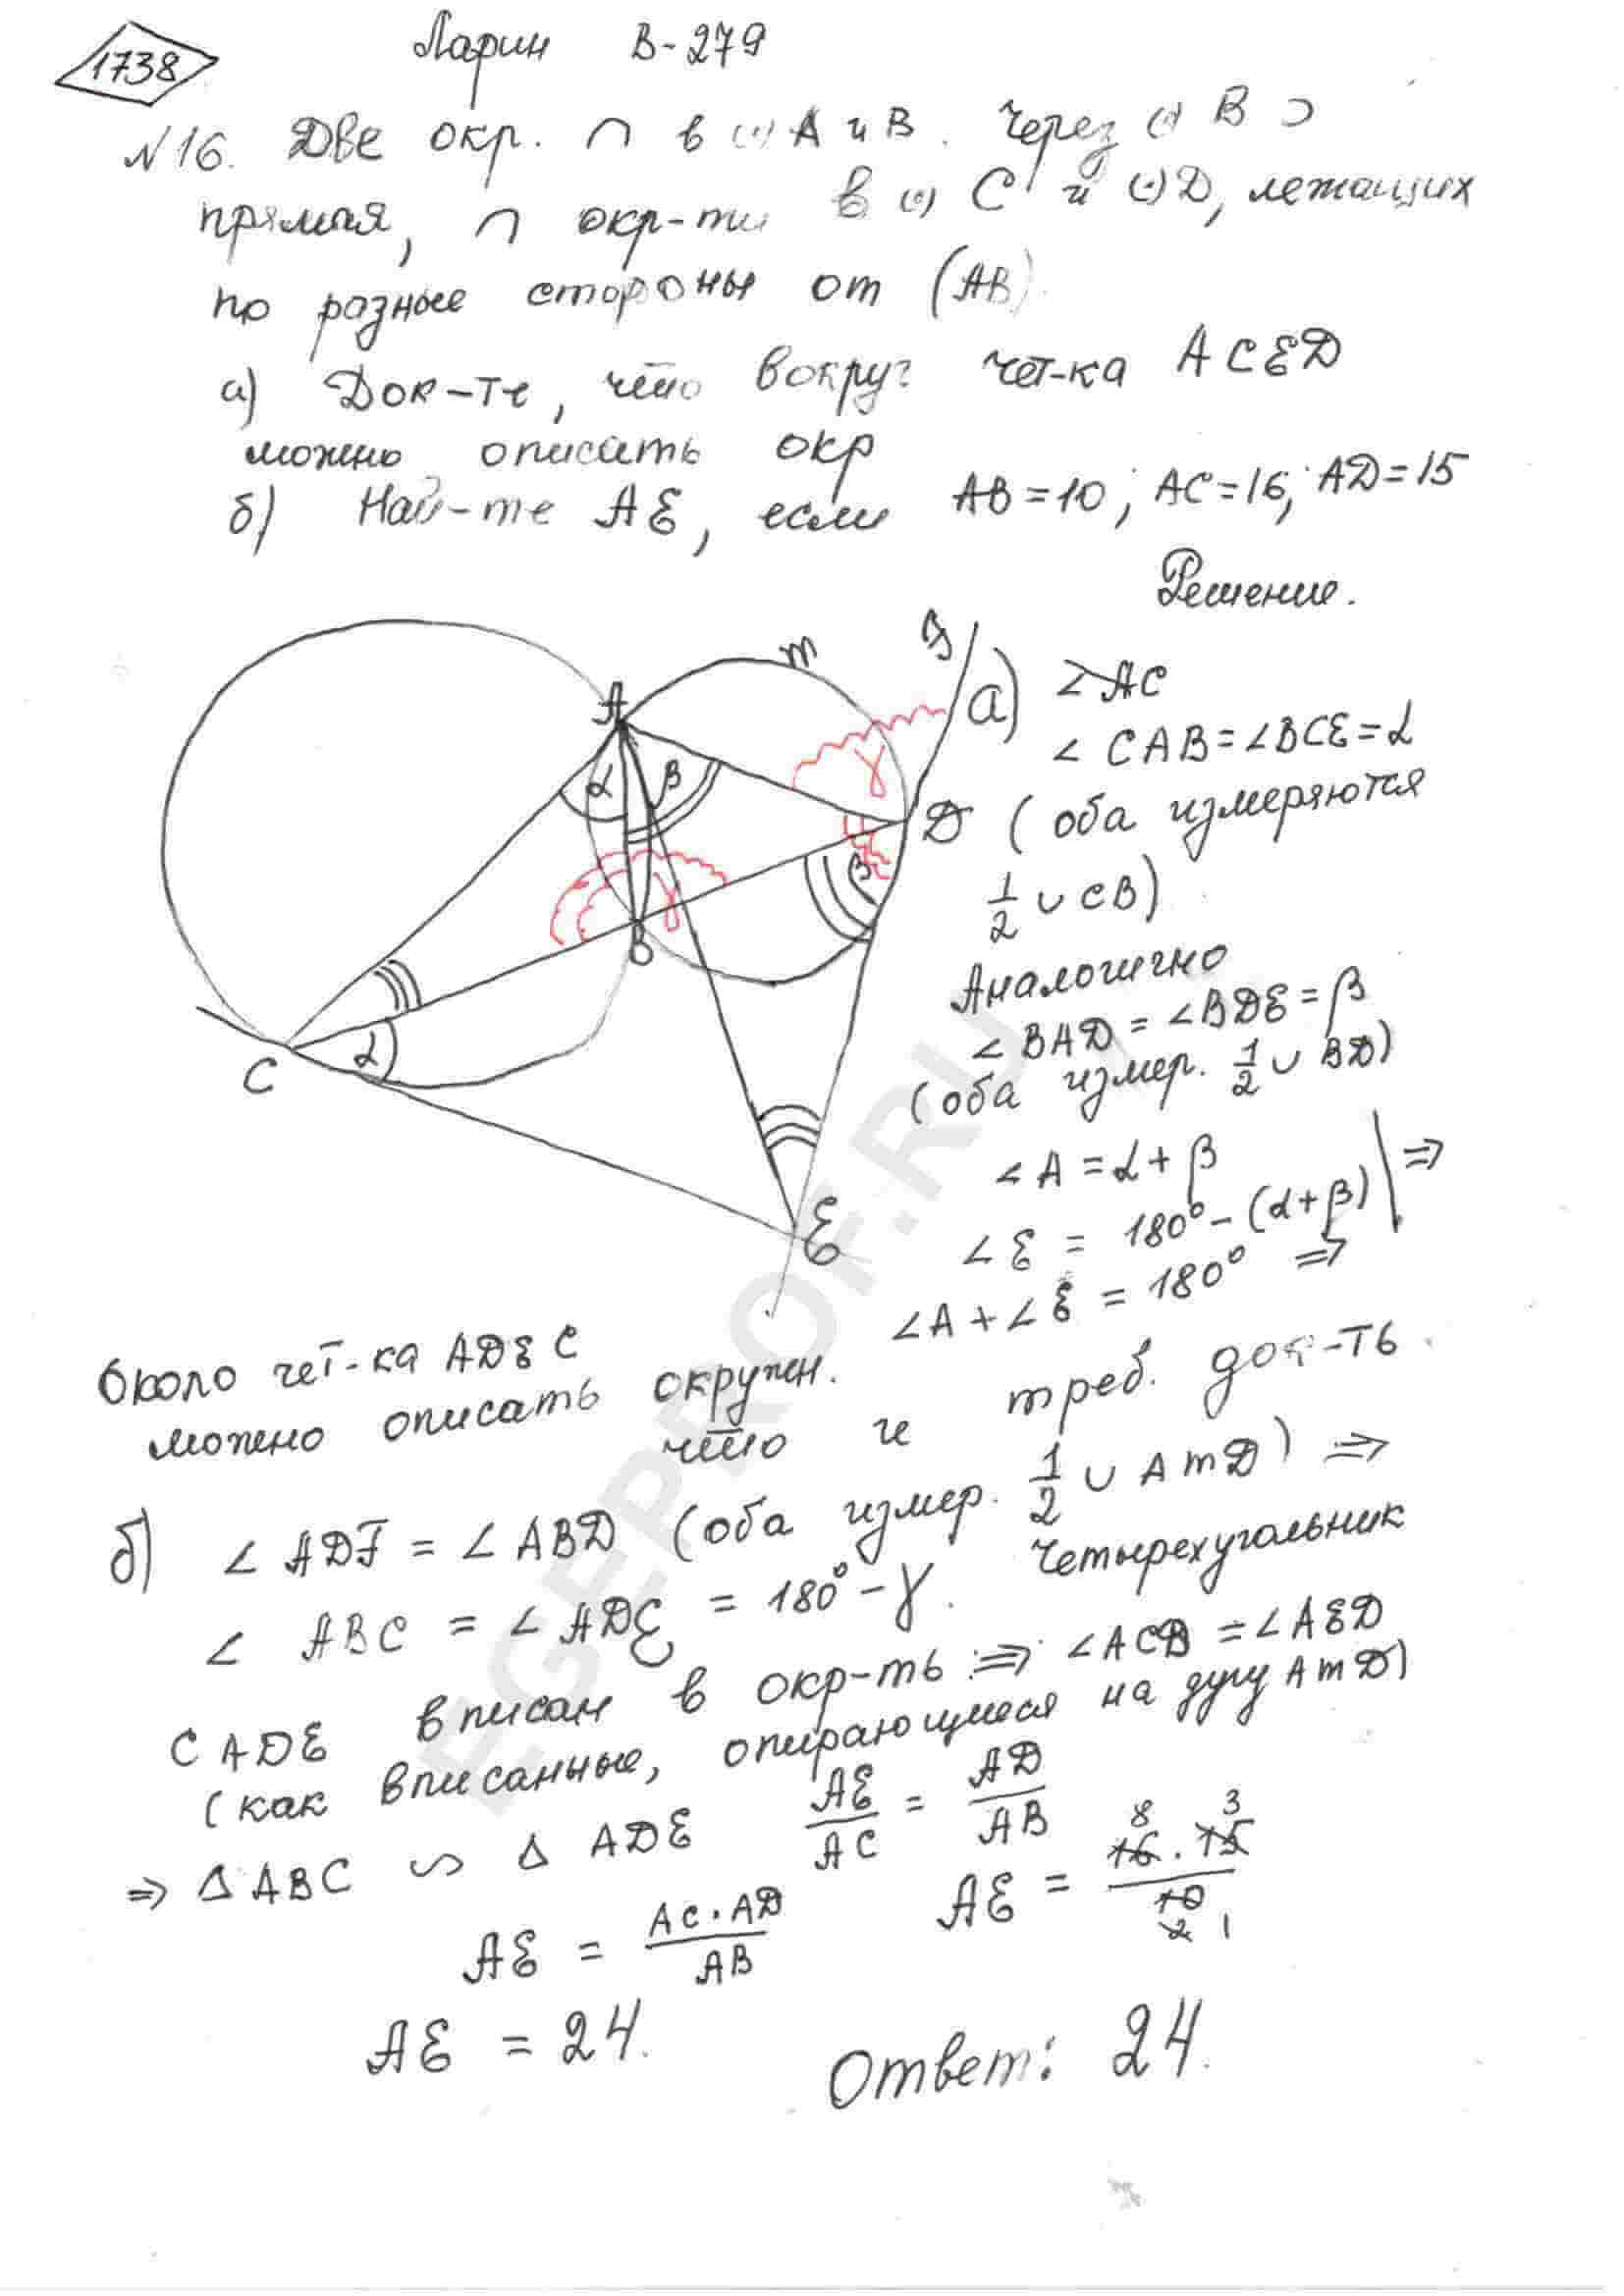 1738
Ларин В-279
№16. Две окр. ∩ в (·) A и B. Через (·) B ⊃
прямая, ∩ окр-ти в (·) C и (·) D, лежащих
по разные стороны от (AB).
а) Док-те, что вокруг чет-ка ACED
можно описать окр
б) Най-те AE, если AB = 10; AC = 16; AD = 15
Решение.
A
m
F
α
β
γ
D
β
γ
B
C
α
E
а) ∠AC
∠CAB = ∠BCE = α
(оба измеряются
1/2 ∪ CB)
Аналогично
∠BAD = ∠BDE = β
(оба измер. 1/2 ∪ BD)
∠A = α + β
∠E = 180° - (α + β) | ⇒
∠A + ∠E = 180° ⇒
около чет-ка ADEC
можно описать окружн.
что и треб. док-ть.
б) ∠ADF = ∠ABD (оба измер. 1/2 ∪ AmD) ⇒
∠ABC = ∠ADE = 180° - γ. Четырехугольник
CADE вписан в окр-ть ⇒ ∠ACB = ∠AED
(как вписанные, опирающиеся на дугу AmD)
⇒ Δ ABC ∽ Δ ADE AE/AC = AD/AB
AE = AC · AD / AB AE = 16 · 15 / 10
8 3
2 1
AE = 24.
Ответ: 24.
EGEPROF.RU